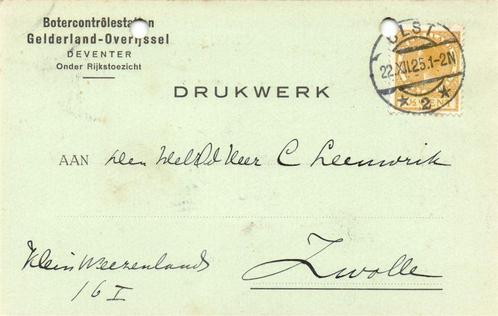 Botercontrôlestation
Gelderland-Overijssel
DEVENTER
Onder Rijkstoezicht
OLST
22.XII.25.1-2N
2
DRUKWERK
AAN den WelEd Heer C Leeuwrik
Klein Weezenland
16 I
Zwolle